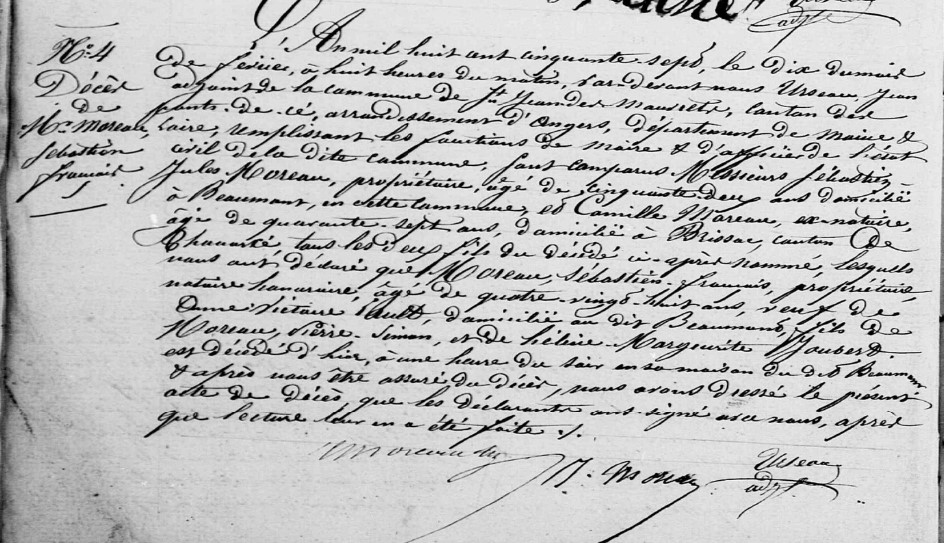 N° 4
Décès
de
Mr. Moreau,
Sébastien
français
L'An mil huit cent cinquante sept, le dix du mois
de février, à huit heures du matin, par-devant nous Urseau, Jean
adjoint de la commune de St. Jean des Mauvrets, canton des
ponts-de-cé, arrondissement d'Angers, département de Maine &
Loire, remplissant les fonctions de maire & d'officier de l'état
civil de la dite commune, sont comparus Messieurs Sébastien
Jules Moreau, propriétaire, âgé de cinquante deux ans domicilié
à Beaumont, en cette commune, et Camille Moreau, ex-notaire,
âgé de quarante-sept ans, domicilié à Brissac, canton de
Thouarcé tous les deux fils du décédé ci-après nommé, lesquels
nous ont déclaré que Moreau, Sébastien-français, propriétaire,
notaire honoraire, âgé de quatre-vingt-huit ans, veuf de
Anne-Victoire domicilié au dit Beaumont, fils de
Moreau, Pierre-Simon, et de hélène-Marguerite Joubert.
est décédé d'hier, à une heure du soir en sa maison du dit Beaumont
& après nous être assuré du décès, nous avons dressé le présent
acte de décès, que les déclarants ont signé avec nous, après
que lecture leur en a été faite ./.
Moreau
J. Moreau
Urseau
adjt